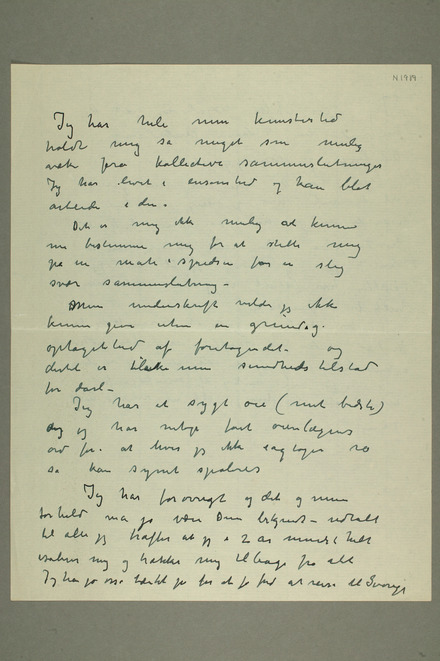 N 1989
Jeg har hele min kunstnertid
holdt mig så meget som mulig
væk fra kollektive sammenslutninger
Jeg har levet i ensomhed og kan blot
arbeide i den.
Det er mig ikke mulig at kunne
nu bestemme mig for at stille mig
på en måte i spidsen for en slig
svær sammenslutning –
Min underskrift vilde jeg ikke
kunne give uten en grundig
optagethed af foretagendet – og
dertil er min sundhedstilstand
for dårl –
Jeg har et sygt øie (mit bedste)
og jeg har netop fåt overlægens
ord for at hvis jeg ikke iagttager ro
så kan synet spoleres
Jeg har forøvrigt og det og mine
forhold må jo være Dem bekjendt – udtalt
til alle jeg træffer at jeg i 2 år
isolerer mig og trækker mig tilbage fra alt
Jeg har jo også for at få fred at reise til Sverige